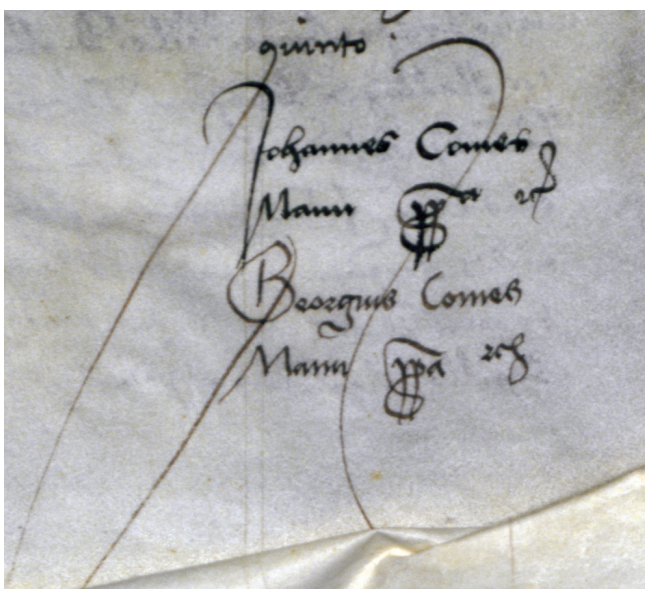 quinto
Johannes Comes
Manu ppa
Georgius Comes
Manu ppa